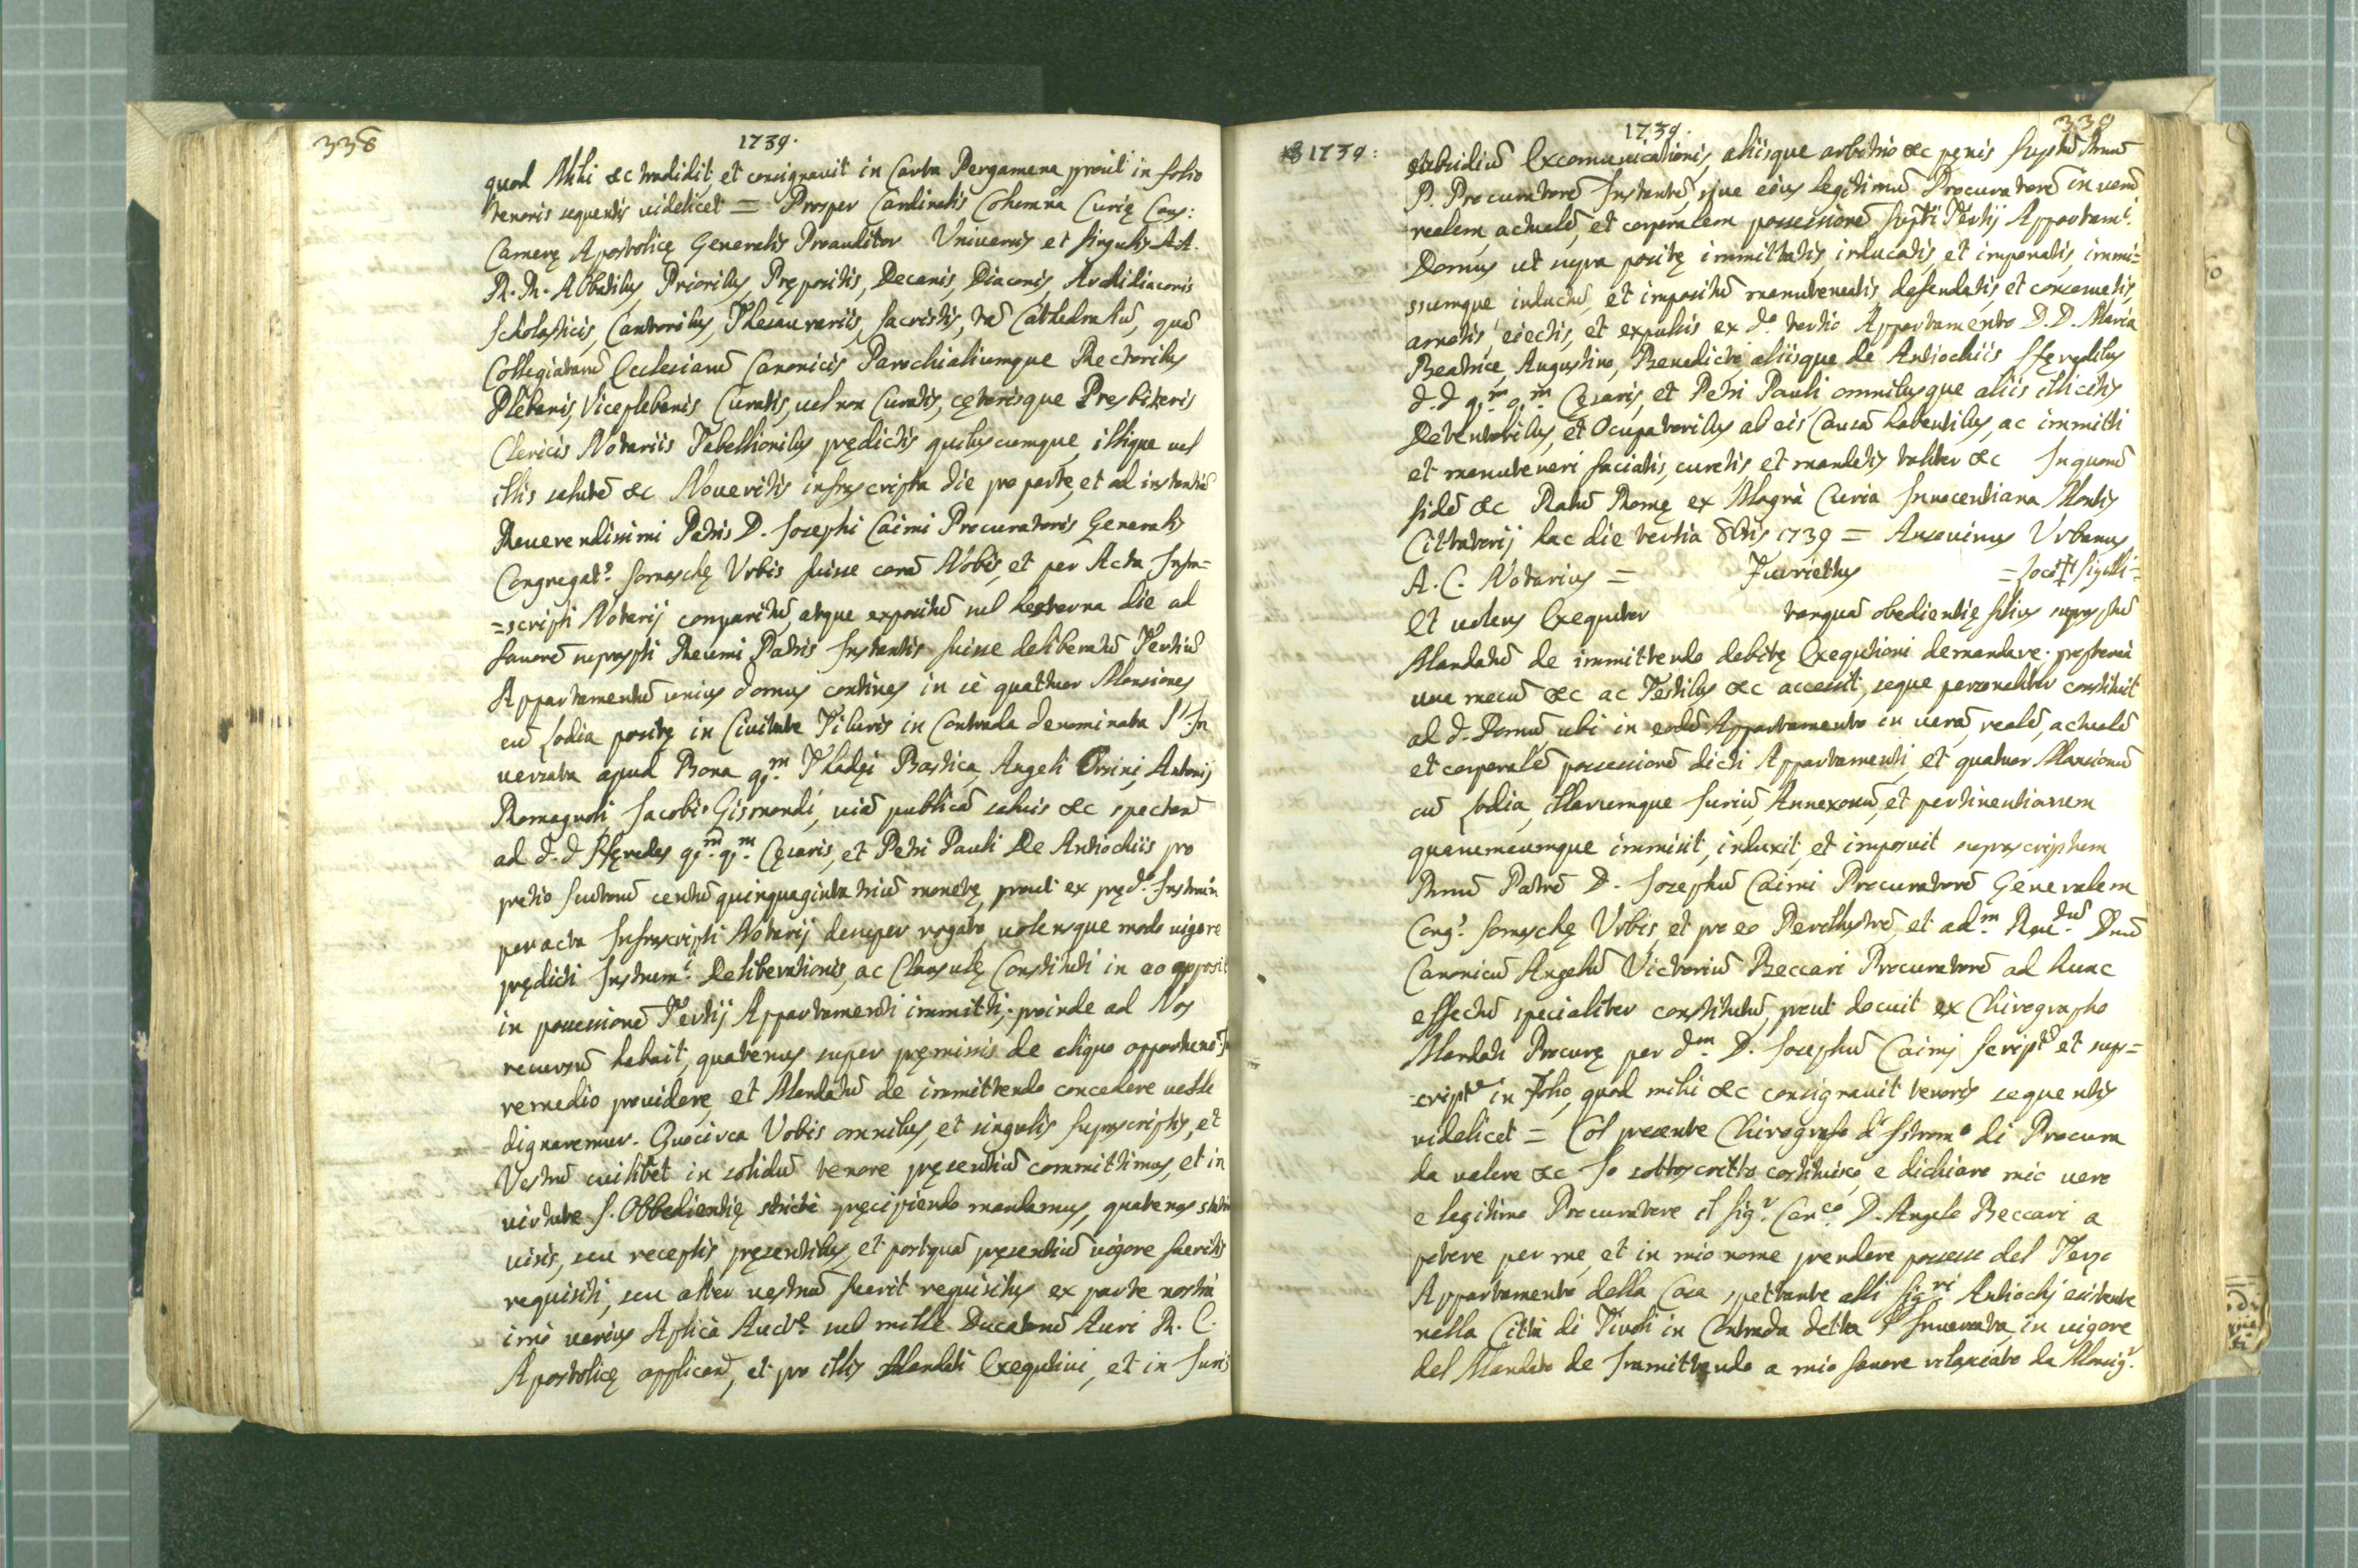 338
1739.
quod Mihi &c tradidit, et consignavit in Carta Pergamena prout in folio
tenoris sequentis videlicet = Prosper Cardinalis Colum̃na Curię Caus:
Camerę Apostolicę Generalis Proauditor Universis et singulis AA.
R. R. Abbatibus, Prioribus, Prępositis, Decanis, Diaconis, Archidiaconis
Scholasticis, Cantoribus, Thesaurariis, sacristis, tam̃ Cathedraliũ, quã
Collegiatarũ Ecclesiarũ Canonicis Parochialiumque Rectoribus
Plebanis, Viceplebanis, Curatis, vel non Curatis, cęterisque Presbiteris
Clericis Notariis Tabellionibus prędictis quibuscumque, illique vel
illis salutẽ &c Noveritis infrascripta die pro parte, et ad instantiã
Reverendissimi Patris D. Josephi Caimi Procuratoris Generalis
Congregat.e Somaschę Urbis fuisse corã Nobis, et per Acta Infra=
=scripti Notarij comparitũ, atque expositũ sub hesterna die ad
favorẽ suprascripti Rev̄mi Patris Instantis fuisse deliberatũ Tertiũ
Appartamentũ unius domus continens in sè quattuor Mansiones
cũ Lodia positę in Civitate Tiburis in Contrada denominata l'In
versata apud Bona q.m Thadęi Bastica, Angeli Orsini, Antonij
Romagnoli, Jacobi Gismondi, viã publicã salvis &c spectanõ
ad d. d. Hęredes q.m q.m Cęsaris, et Petri Pauli De Antiochiis pro
pretio scutorũ centũ quinquaginta triũ monetę, prout ex pręd.o Instrum.
per acta Infrascripti Notarij desuper rogato, volensque modo vigore
prędicti Instrum.i Deliberationis, ac Clausulę Constituti in eo apposit
in possessionẽ Tertij Appartamenti immitti, proinde ad Nos
recursũ habuit, quatenus super pręmissis de aliquo opportuno
remedio providere, et Mandatũ de immittendo concedere velle
dignaremur. Quocirca Vobis omnibus, et singulis suprascriptis, et
Vestrũ cuilibet in solidũ tenore pręsentiũ committimus, et in
virtute S. Obbedientię stricte pręcipiendo mandamus, quatenus statim
visis, seu receptis pręsentibus, et postquã pręsentiũ vigore fueritis
requisiti, seu alter vestrũ fuerit requisitus ex parte nostra
imò verius Aplicà Auct.e sub mille Ducatorũ Auri R. C.
Apostolicę applicanã, et pro illis Mandati Exequtivi, et in Juris
1739.
339
1739:
subsidiũ Excomunicationis, aliisque arbitrio &c pęnis supt̃ũ Rm̃ũ
P. Procuratorẽ Instantẽ, sive eius legitimũ Procuratorẽ in verã
realem, actualẽ, et corporalem possessionẽ supt̃i Tertij Appartam.i
Domus ut supra positę immittatis, inducatis, et imponatis, immi=
ssumque inductũ, et impositũ manuteneatis, defendatis, et conservetis,
amotis, eiectis, et expulsis ex d.o tertio Appartamento D. D. Maria
Beatrice, Augustino, Benedicto, aliisque de Antiochiis Hęredibus
d. d. q.m q.m Cęsaris, et Petri Pauli omnibusque aliis illicitis
Detentoribus, et Ocupatoribus ab eis Causã habentibus, ac immitti
et manuteneri faciatis, curetis et mandetis taliter &c In quorũ
fidẽ &c Datũ Romę ex Magna Curia Innocentiana Montis
Cittatorij hac die tertia 8bris 1739 = Ansovinus Urbanus
A. C. Notarius = Turriettus = Loco † Sigilli =
Et volens Exequtor tanquã obedientię filius suprasptũ
Mandatũ de immittendo debitę Exequtioni demandare. propterea
una mecũ &c ac Testibus &c accessit, seque personaliter constituit
ad d. Domũ ubi in eodẽ Appartamento in verã, realẽ, actualẽ
et corporalẽ possessionẽ dicti Appartamenti, et quatuor Mansionũ
cũ Lodia, illarumque Juriũ, Annexorũ, et pertinentiarum
quarumcumque immisit, induxit, et imposuit suprascriptum
Rm̃ũ Patrẽ D. Josephũ Caimi Procuratorẽ Generalem
Cong.e Somaschę Urbis, et pro eo Perillustrẽ, et ad.m Rev.dũ Dnũ
Canonicũ Angelũ Victoriũ Beccari Procuratorẽ ad hunc
effectũ specialiter constitutũ, prout docuit ex Chirographo
Mandati Procurę per d.m D. Josephũ Caimi script.o et sups=
script.o in folio, quod mihi &c consignavit tenoris sequentis
videlicet = Col presente Chirografo d'Istrom.o di Procura
da valere &c Io sottoscritto costituisco, e dichiaro mio vero
e legitimo Procuratore il Sig.r Can.co D. Angelo Beccari a
potere per me, et in mio nome prendere possesso del Terzo
Appartamento della Casa spettante alli Sig.ri Antiochj esistente
nella Città di Tivoli in Contrada detta l'Inversata, in vigore
del Mandato de Immittendo a mio favore rilasciato da Monsig.r